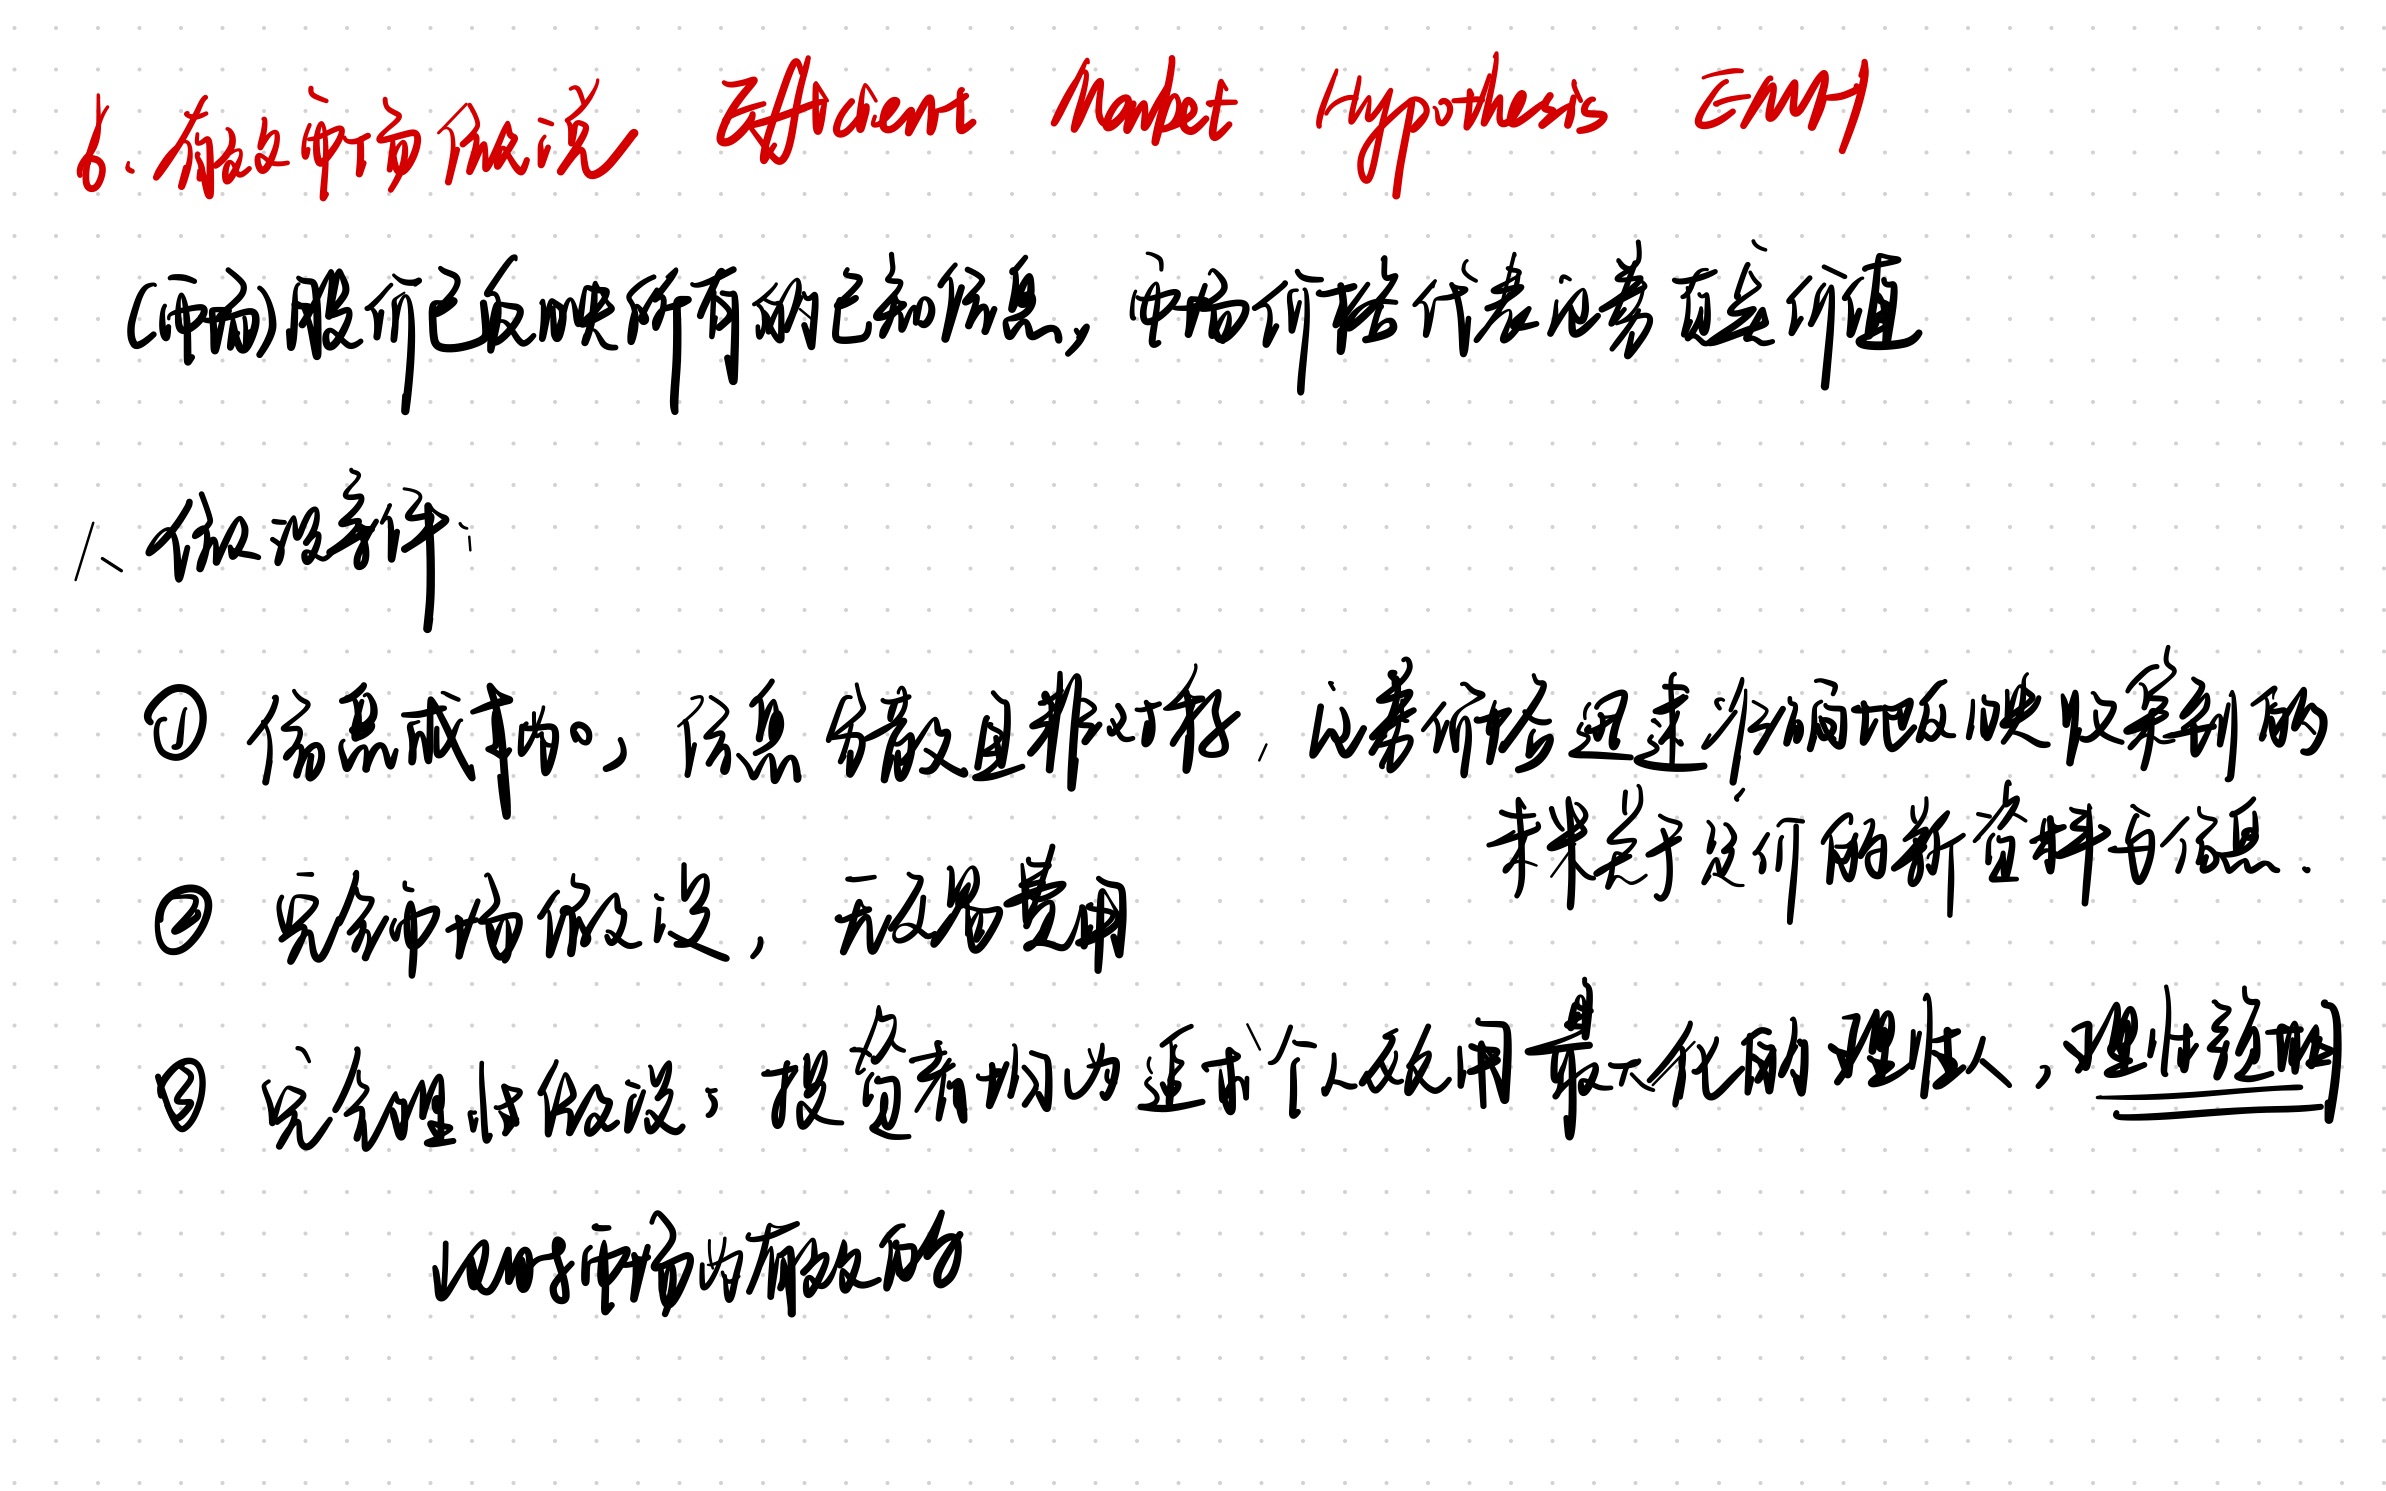 6. 有效市场假说 Efficient Market Hypothesis EMH
(市商)股价已反映所有的已知信息, 市场价格代表内券真实价值
1、假设条件:
① 信息成本0, 信息分散且非对称, 证券价格迅速准确地反映收集到的
未来关于它们的新资料与信息.
② 完全市场假设, 无交易费用
③ 完全理性假设: 投资者均为追求个人效用最大化的理性人, 理性预期
市场为有效的